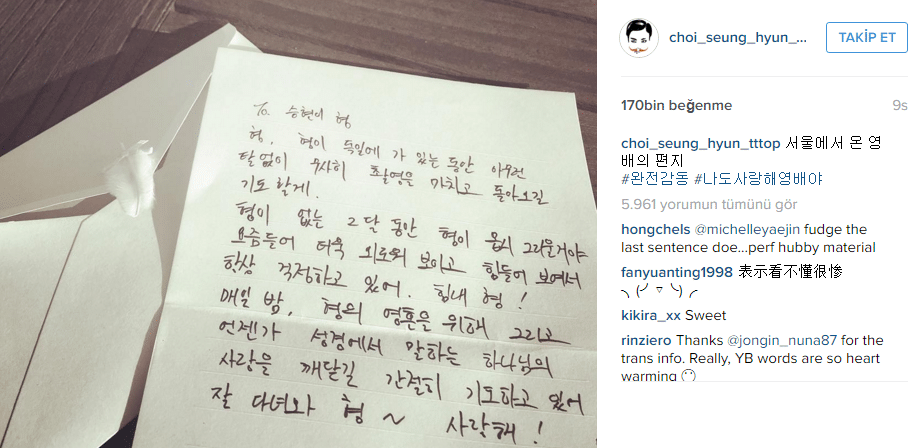 To. 승현이 형
형, 형이 독일에 가 있는 동안 아무런
탈 없이 무사히 촬영을 마치고 돌아오길
기도 할게.
형이 없는 2달 동안 형이 몹시 그리운거야
요즘들어 더욱 외로워 보이고 힘들어 보여서
항상 걱정하고 있어. 힘내 형!
매일 밤, 형의 영혼을 위해 그리고
언젠가 성경에서 말하는 하나님의
사랑을 깨닫길 간절히 기도하고 있어
잘 다녀와 형 ~ 사랑해!
choi_seung_hyun_...
TAKİP ET
170bin beğenme
9s
choi_seung_hyun_tttop 서울에서 온 영
배의 편지
#완전감동 #나도사랑해영배야
5.961 yorumun tümünü gör
hongchels @michelleyaejin fudge the
last sentence doe...perf hubby material
fanyuanting1998 表示看不懂很惨
╮(╯▽╰)╭
kikira_xx Sweet
rinziero Thanks @jongin_nuna87 for the
trans info. Really, YB words are so heart
warming